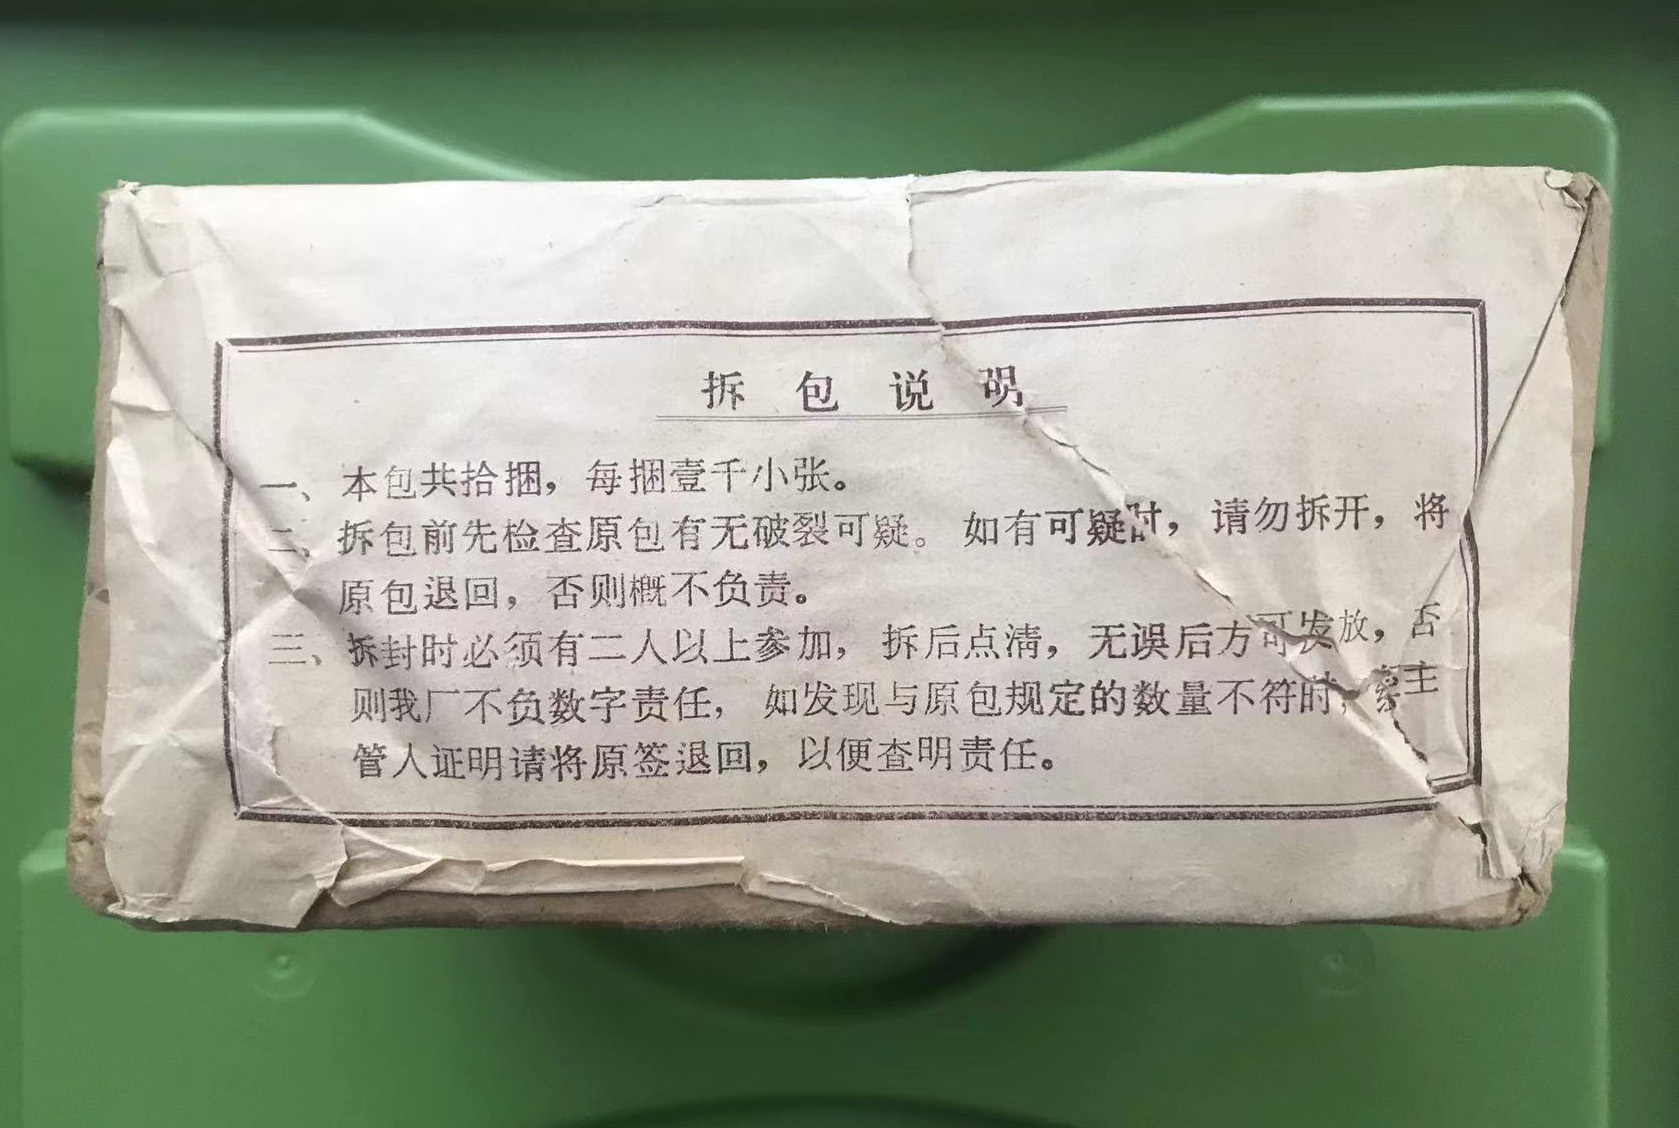 拆包说明
一、本包共拾捆，每捆壹千小张。
二、拆包前先检查原包有无破裂可疑。如有可疑时，请勿拆开，将
原包退回，否则概不负责。
三、拆封时必须有二人以上参加，拆后点清，无误后方可发放，否
则我厂不负数字责任，如发现与原包规定的数量不符时，主
管人证明请将原签退回，以便查明责任。